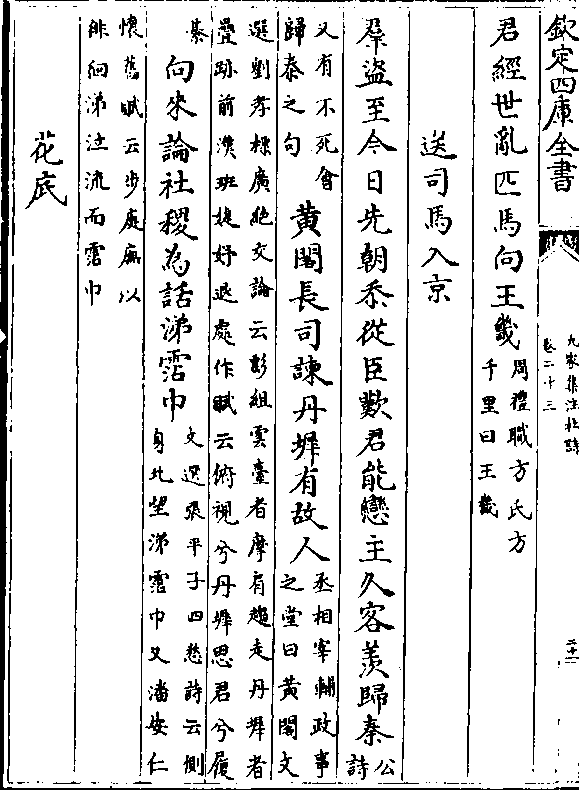 欽定四庫全書
九家集注杜詩
卷二十三
二十一
君經世亂匹馬向王畿周禮職方氏方
千里曰王畿
送司馬入京
羣盜至今日先朝忝從臣歎君能戀主久客羨歸秦公詩
又有不死會
歸秦之句
黄閣長司諫丹墀有故人丞相宰輔政事
之堂曰黄閣文
選劉孝標廣絶交論云彭組雲臺者摩肩趨走丹墀者
疊跡前漢班婕妤退處作賦云俯視兮丹墀思君兮履
綦
向來論社稷為話涕霑巾文選張平子四愁詩云側
身北望涕霑巾又潘安仁
懷舊賦云步庭廡以
徘徊涕泣流而霑巾
花底